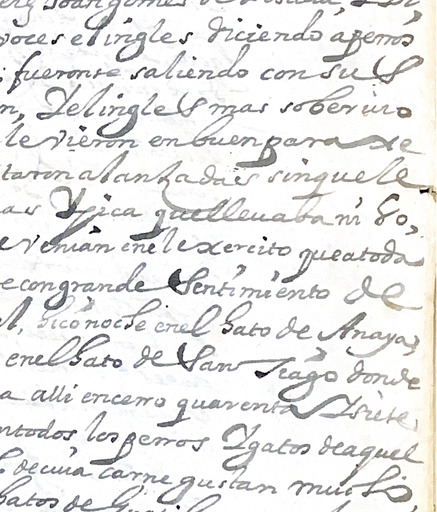 voces el ingles diciendo aperros
fueronse saliendo con su S
n, Y el ingles mas soberuio
le vieron en buen paraxe
taron a lanzadas sin que le
as Y pica que lleuaba ni Go,
e venian en el exercito que atoda
e con grande sentimiento de
hiço noche en el hato de Anaya,
en el hato de San Tiago donde
a alli encerro quarenta Y siete,
ntodos los perros Y gatos de aquel
de cuia carne gustan mucho,
hatos de